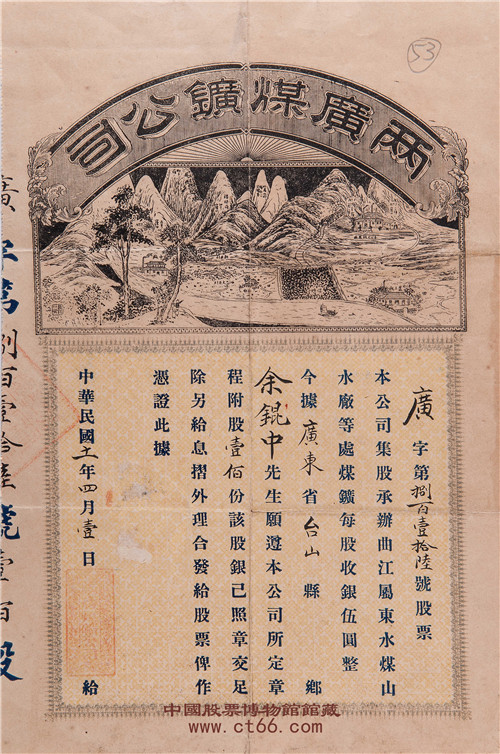 53
兩廣煤鑛公司
廣字第捌百壹拾陸號股票
本公司集股承辦曲江屬東水煤山
水廠等處煤鑛每股收銀伍圓整
今據廣東省台山縣 鄉
余錕中先生願遵本公司所定章
程附股壹佰份該股銀已照章交足
除另給息摺外理合發給股票俾作
憑證此據
中華民國十一年四月壹日 給
廣字第捌百壹拾陸號壹百股
中國股票博物館館藏
www.ct66.com